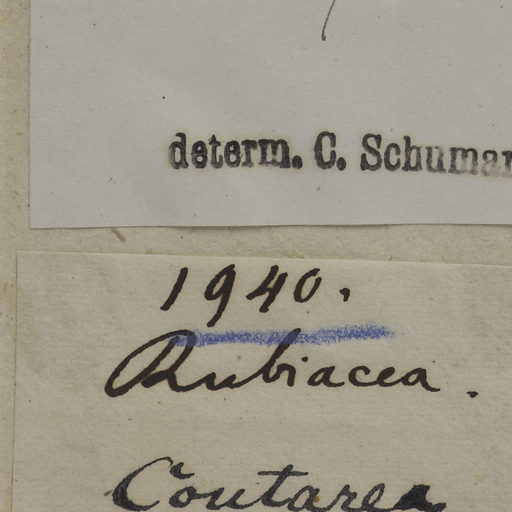 determ. C. Schuman
1940.
Rubiacea.
Coutarea